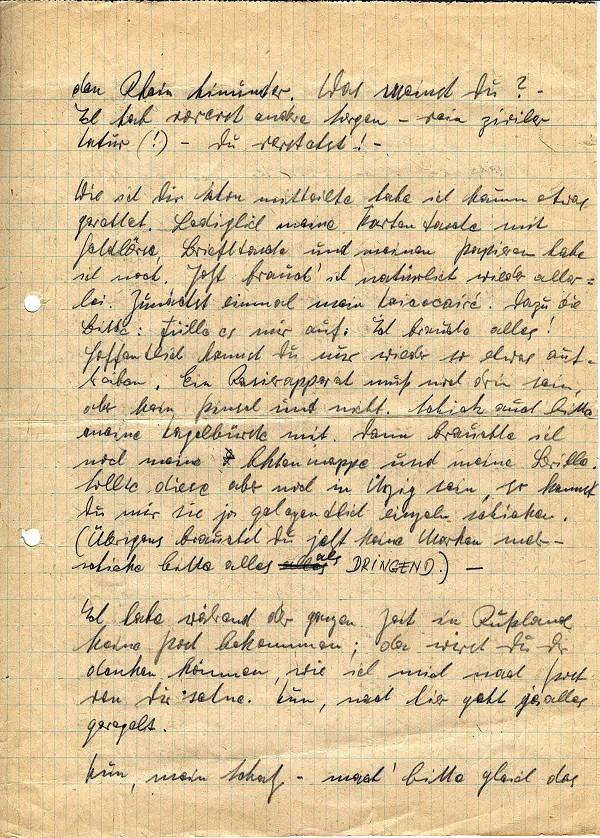 den Rhein hinunter. Was meinst Du? -
Ich hab vorerst andre Sorgen - rein ziviler
Natur (!) - Du verstehst! -
Wie ich Dir schon mitteilte habe ich kaum etwas
gerettet. Lediglich meine Kartentasche mit
Geldbörse, Brieftasche und meinen Papieren habe
ich noch. Jetzt brauch' ich natürlich wieder aller=
lei. Zunächst einmal mein. Dazu die
Bitte: Fülle es mir auf. Ich brauche alles!
Hoffentlich kannst Du nur wieder so etwas auf-
treiben. Ein Rasierapparat muß noch drin sein,
aber kein Pinsel und nicht. Schick auch bitte
meine Nagelbürste mit. Dann brauchte ich
noch meine Aktenmappe und meine Brille.
Sollte diese aber noch in sein, so kannst
Du mir sie ja gelegentlich einzeln schicken.
(Übrigens brauchst Du jetzt keine Marken mehr -
schicke bitte alles als DRINGEND.) -
Ich habe während der ganzen Zeit in Rußland
keine Post bekommen; da wirst Du Dir
denken können, wie ich mich nach Post
von Dir sehne. Nun, nach hier geht ja alles
geregelt.
Nun, mein Schatz - mach' bitte gleich das